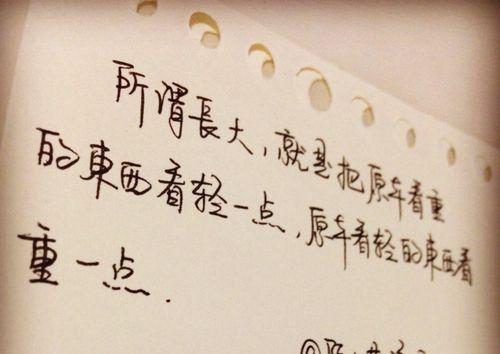 所謂長大,就是把原本看重
的東西看轻一点,原本看轻的東西看
重一点.